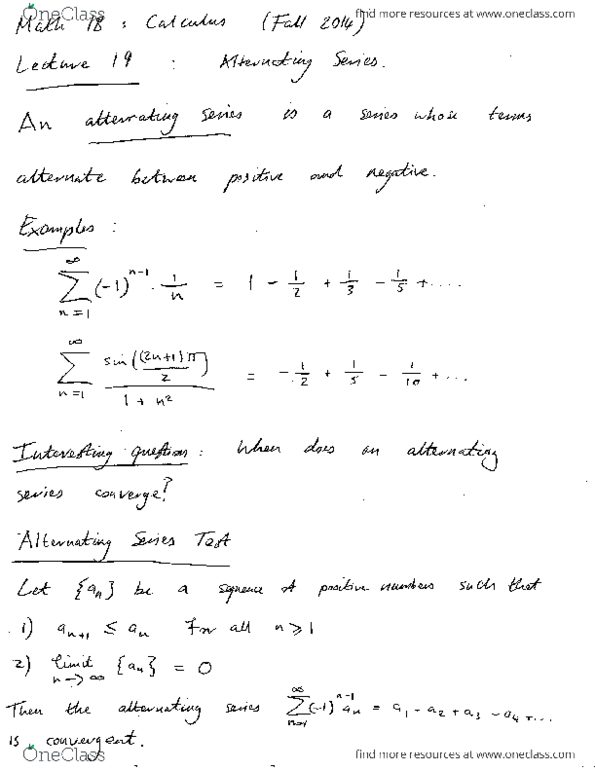 OneClass find more resources at www.oneclass.com
Math 1B : Calculus (Fall 2014)
Lecture 19 : Alternating Series.
An alternating series is a series whose terms
alternate between positive and negative.
Examples :
∞∑n=1 (-1)^{n-1} · 1/n = 1 - 1/2 + 1/3 - 1/5 + ....
∞∑n=1 sin((2n+1)π/2) / (1 + n²) = - 1/2 + 1/5 - 1/10 + ...
Interesting question : When does an alternating
series converge?
Alternating Series Test
Let {aₙ} be a sequence of positive numbers such that
1) aₙ₊₁ ≤ aₙ for all n ≥ 1
2) limit n→∞ {aₙ} = 0
Then the alternating series ∞∑n=1 (-1)^{n-1} aₙ = a₁ - a₂ + a₃ - a₄ + ...
is convergent.
OneClass find more resources at www.oneclass.com